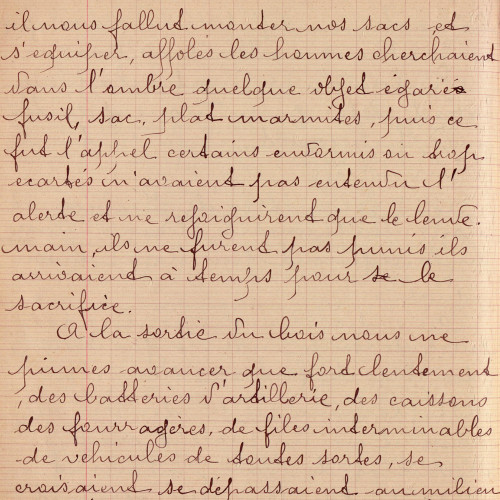 il nous fallut monter nos sacs et
s'equiper, affolés les hommes cherchaient
dans l'ombre quelque objet égaré
fusil, sac, plat marmites, puis ce
fut l'appel certains endormis ou trop
ecartés n'avaient pas entendu l'
alerte et ne rejoignirent que le lende-
main, ils ne furent pas punis ils
arrivaient à temps pour le
sacrifice.
A la sortie du bois nous ne
pûmes avancer que fort lentement
, des batteries d'artillerie, des caissons
des fourragères, de files interminables
de vehicules de toutes sortes, se
croisaient se dépassaient au milieu